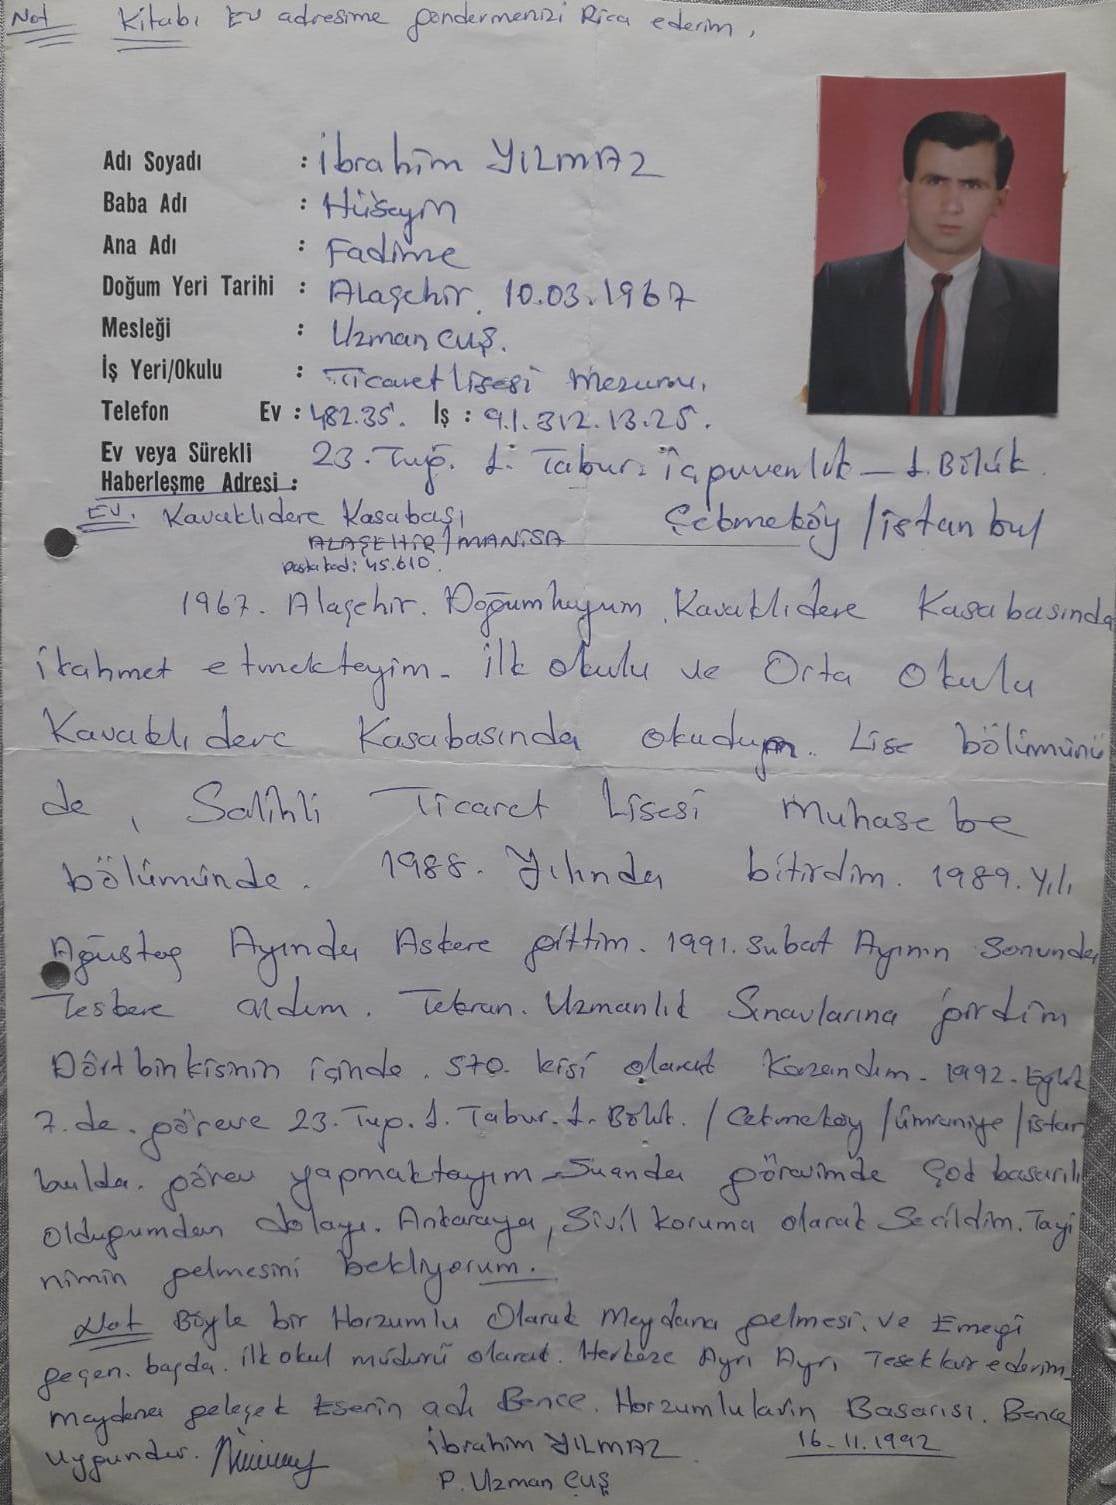 Not Kitabı Ev adresime göndermenizi Rica ederim,
Adı Soyadı : İbrahim YILMAZ
Baba Adı : Hüseyin
Ana Adı : Fadime
Doğum Yeri Tarihi : Alaşehir. 10.03.1967
Mesleği : Uzman Çuş.
İş Yeri/Okulu : Ticaret Lisesi Mezunu,
Telefon Ev : 482.35. İş : 9.1.312.13.25.
Ev veya Sürekli 23. Tuğ. 1. Tabur. İçguvenlık - 1. Bölük.
Haberleşme Adresi :
Ev. Kavaklıdere Kasabası Çekmeköy / istanbul
ALAŞEHİR / MANİSA
Posta kod: 45.610.
1967. Alaşehir. Doğumluyum. Kavaklıdere Kasabasında
ikahmet etmekteyim. ilk okulu ve Orta Okulu
Kavaklıdere Kasabasında okudum. Lise bölümünü
de, Salihli Ticaret Lisesi Muhasebe
bölümünde. 1988. Yılında bitirdim. 1989. Yılı
Ağustos Ayında Askere gittim. 1991. Subat Ayının Sonunda
Tesbere aldım. Tekran. Uzmanlık Sınavlarına girdim
Dört bin kisinin içinde. 570. kişi olarak Kazandım. 1992. Eylül
7. de. göreve 23. Tug. 1. Tabur. 1. Bölük. / Çekmeköy / ümraniye / istan
bulda. görev yapmaktayım. Suanda görevimde Çok basarılı
olduğumdan dolayı. Ankaraya, Sivil koruma olarak Secildim. Tayi
nimin gelmesini bekliyorum.
Not Böyle bir Horzumlu Olarak Meydana gelmesi. ve Emeği
geçen. başda. ilk okul müdürü olarak. Herkeze Ayrı Ayrı Tesekkur ederim.
Maydana geleçek Eserin adı Bence. Horzumluların Basarısı. Bence
uygundur.
İbrahim YILMAZ 16.11.1992
P. Uzman Çuş